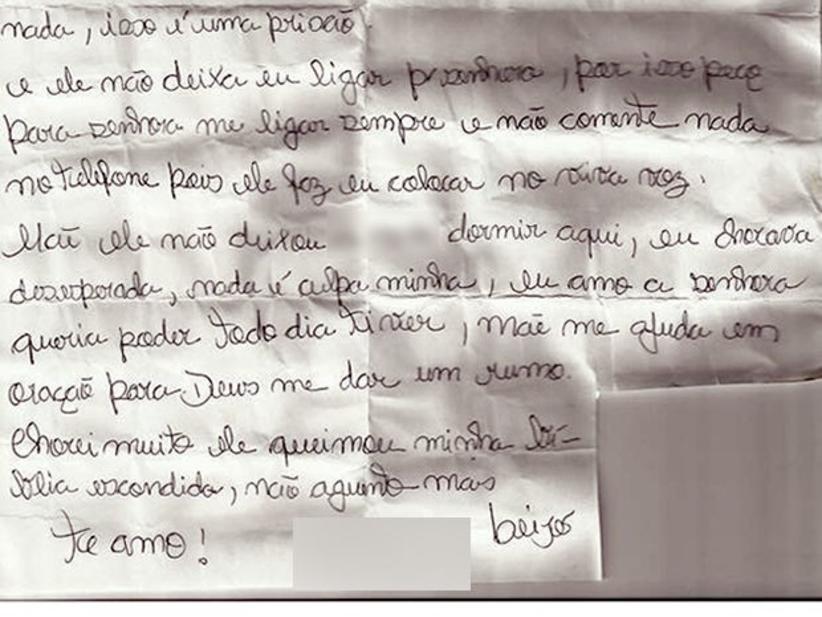 nada, isso é uma prisão.
e ele não deixa eu ligar p/ senhora, por isso peço
para senhora me ligar sempre e não comente nada
no telefone pois ele faz eu colocar no viva voz.
Mãe ele não deixou dormir aqui, eu chorava
desesperada, nada é culpa minha, eu amo a senhora
queria poder todo dia ti ver, mãe me ajuda em
oração para Deus me dar um rumo.
Chorei muito ele queimou minha Bí-
blia escondido, não aguento mais
te amo! beijos